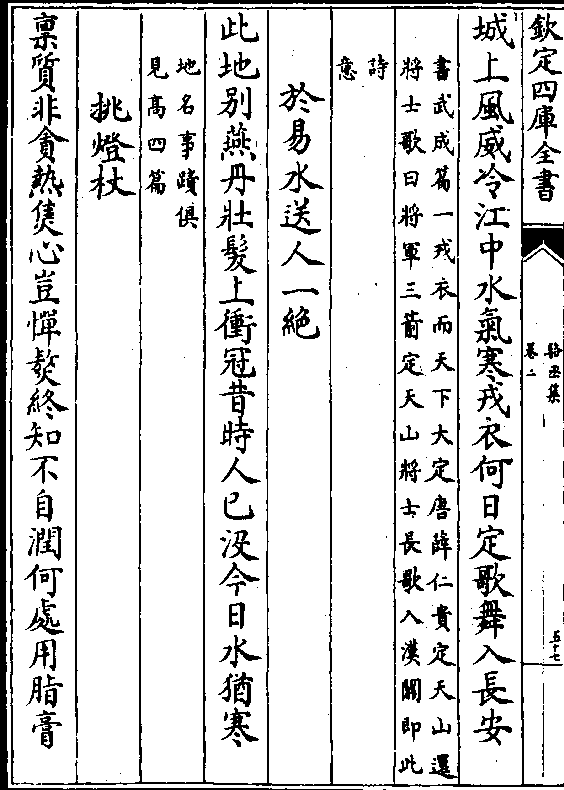 欽定四庫全書
駱丞集
卷二
五十七
城上風威冷江中水氣寒戎衣何日定歌舞入長安
書武成篇一戎衣而天下大定唐薛仁貴定天山還
將士歌曰將軍三箭定天山將士長歌入漢關即此
詩
意
於易水送人一絶
此地别燕丹壯髮上衝冠昔時人已没今日水猶寒
地名事蹟俱
見髙四篇
挑燈杖
禀質非貪熱焦心豈憚熬終知不自潤何處用脂膏